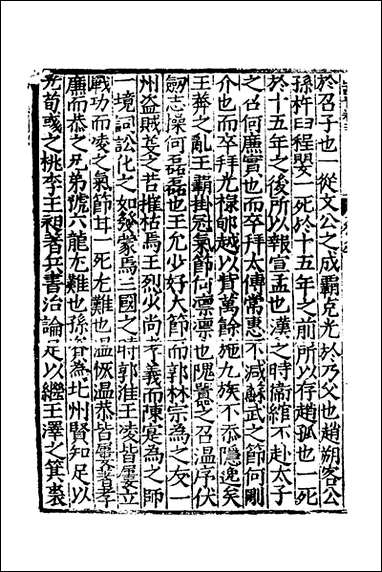 於召子也一從文公之成霸克光於乃父也趙朔客公
孫杵臼程嬰一死於十五年之前所以存趙孤也一死
於十五年之後所以報宣孟也漢之時衛綰不赴太子
之召何廉實也而卒拜太傅常惠不減蘇武之節何剛
介也而卒拜光祿郇越以貲萬餘施九族不忝隱逸矣
王莽之亂王霸掛冠氣節何凛凛也隗囂之召溫序伏
劒志操何磊磊也王允少好大節而郭林宗為之友一
州盗賊芟之若摧枯焉王烈少尚孝義而陳寔為之師
一境詞訟化之如發蒙焉三國之時郭淮王凌皆屢立
戰功而凌之氣節其一死尤難也温恢温恭皆屢舉孝
廉而恭之兄弟號六龍尤難也孫資為北州賢知足以
光荀彧之桃李王昶著兵書治論足以繼王澤之箕裘